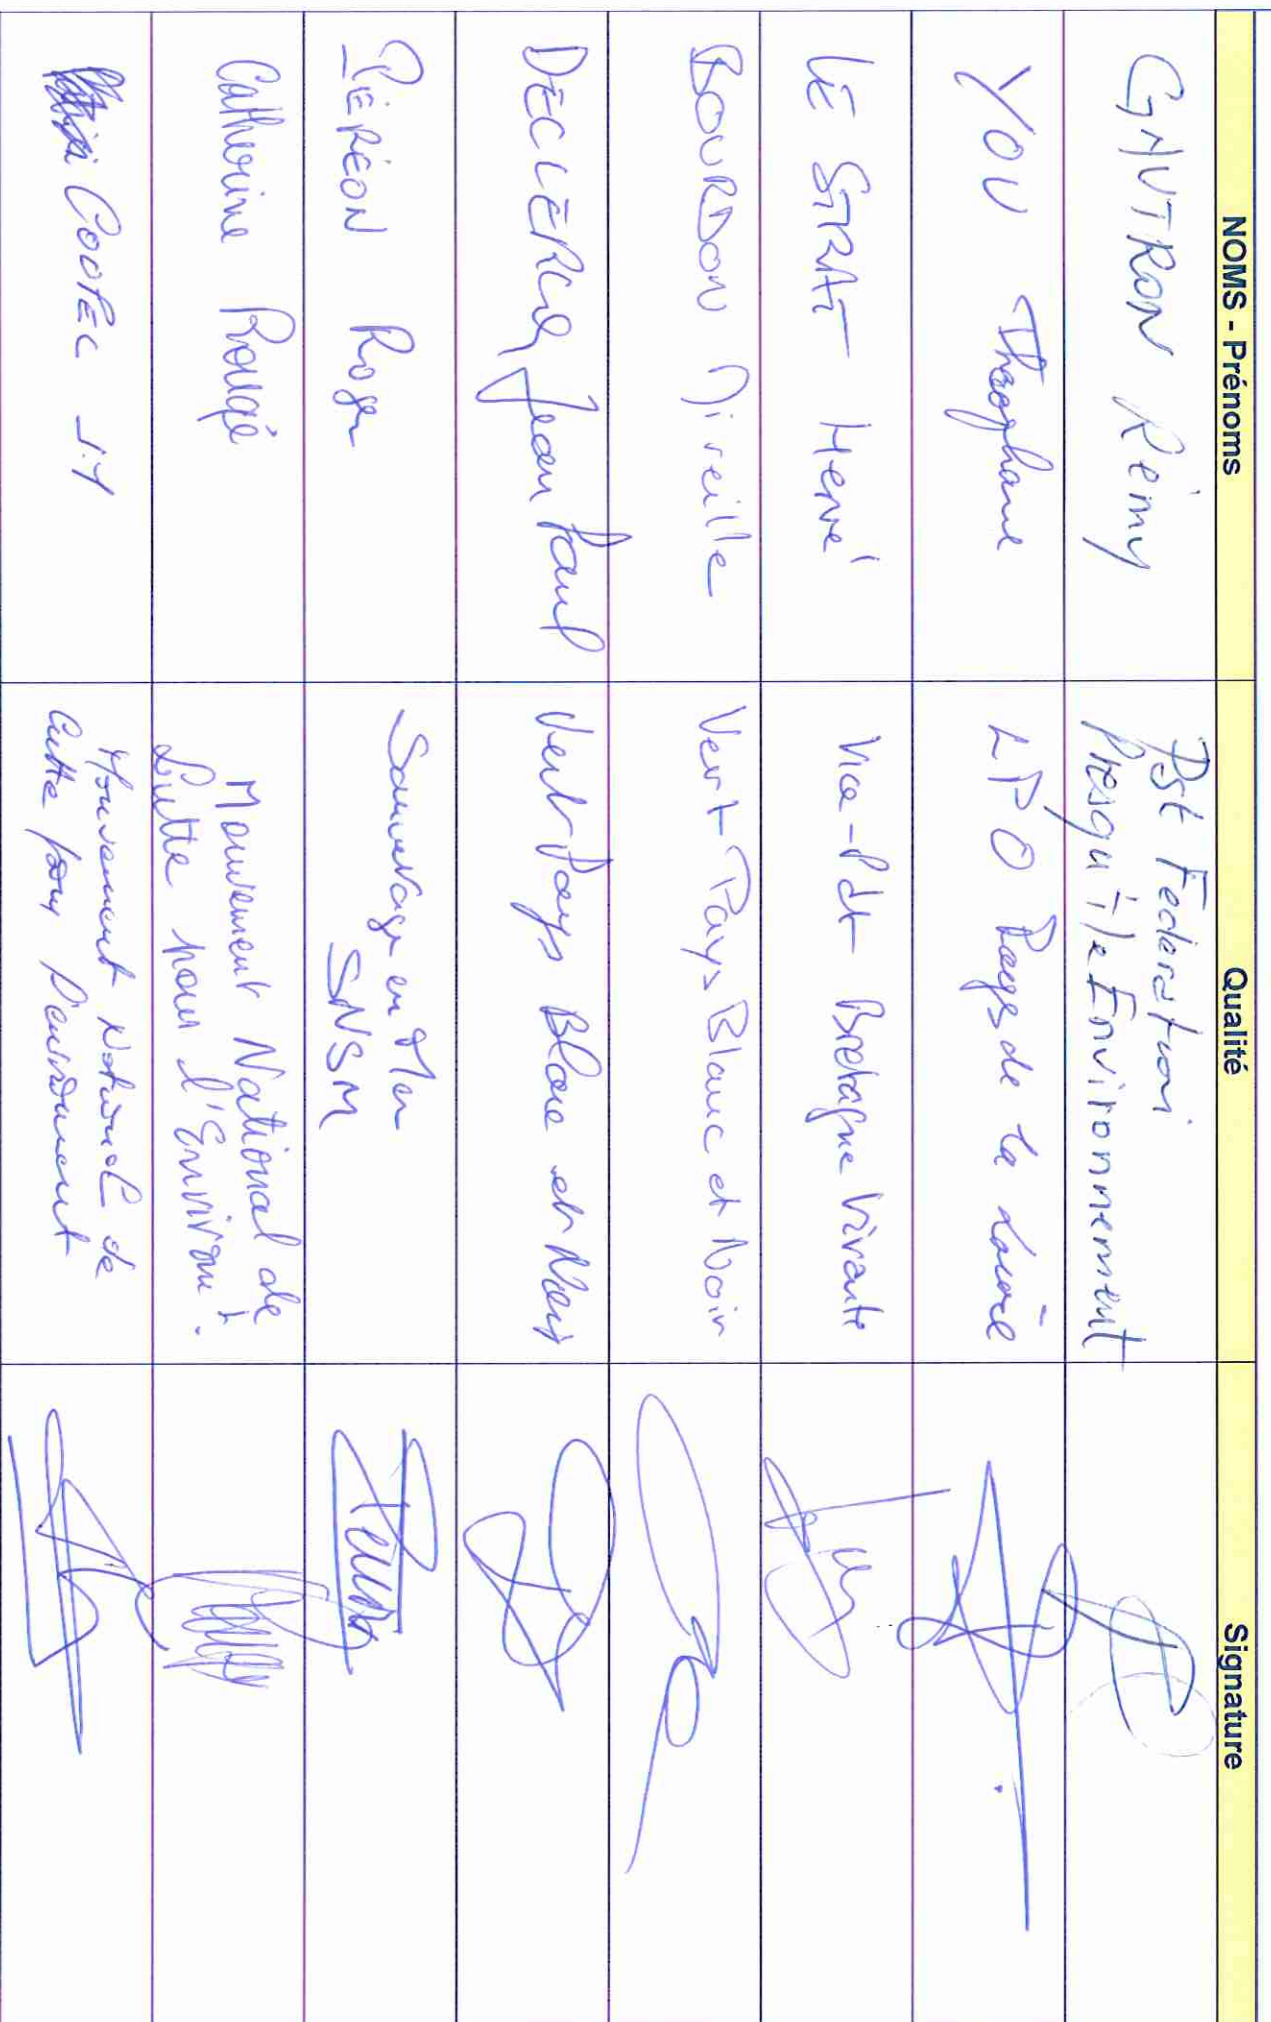 NOMS - Prénoms Qualité Signature
GAUTRON Rémy Pst Federation
Presqu'île Environnement
YOU Théophane LPO Pays de la Loire
LE STRAT Hervé Vice-Pdt Bretagne Vivante
BOURDON Mireille Vert Pays Blanc et Noir
DECLERCQ Jean Paul Vert Pays Blanc et Noir
PÉRÉON Roger Sauvetage en Mer
SNSM
Catherine Rougé Mouvement National de
Lutte pour l'Environt.
J.Y Mouvement National de
Lutte pour l'environnement